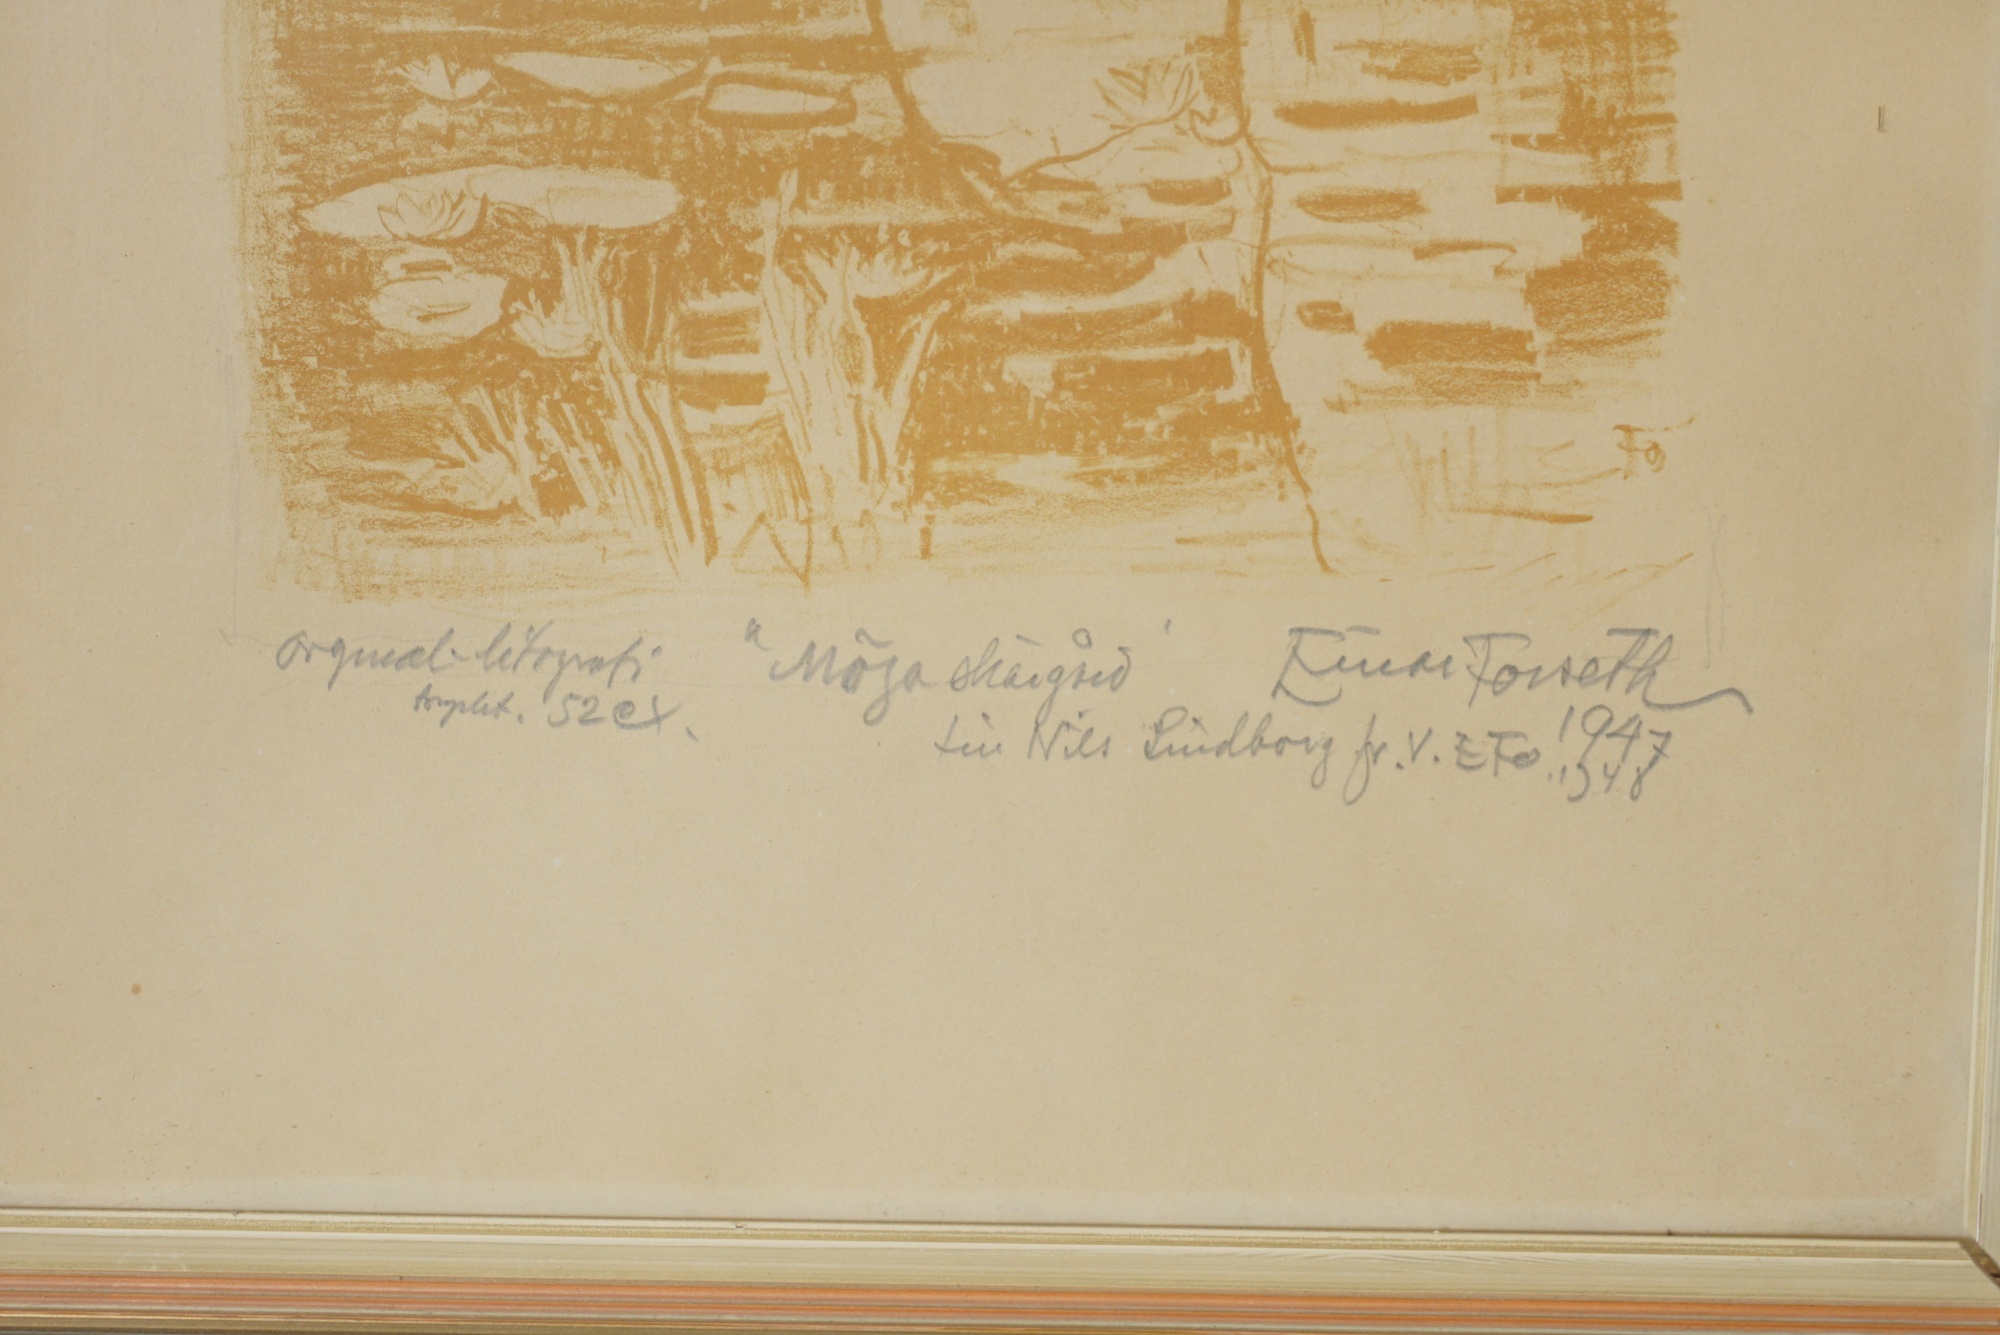 Fo
original-litografi "Möja Skärgård" Einar Forseth
52 ex.
till Nils Lindborg fr. V. E Fo. 1947
1948